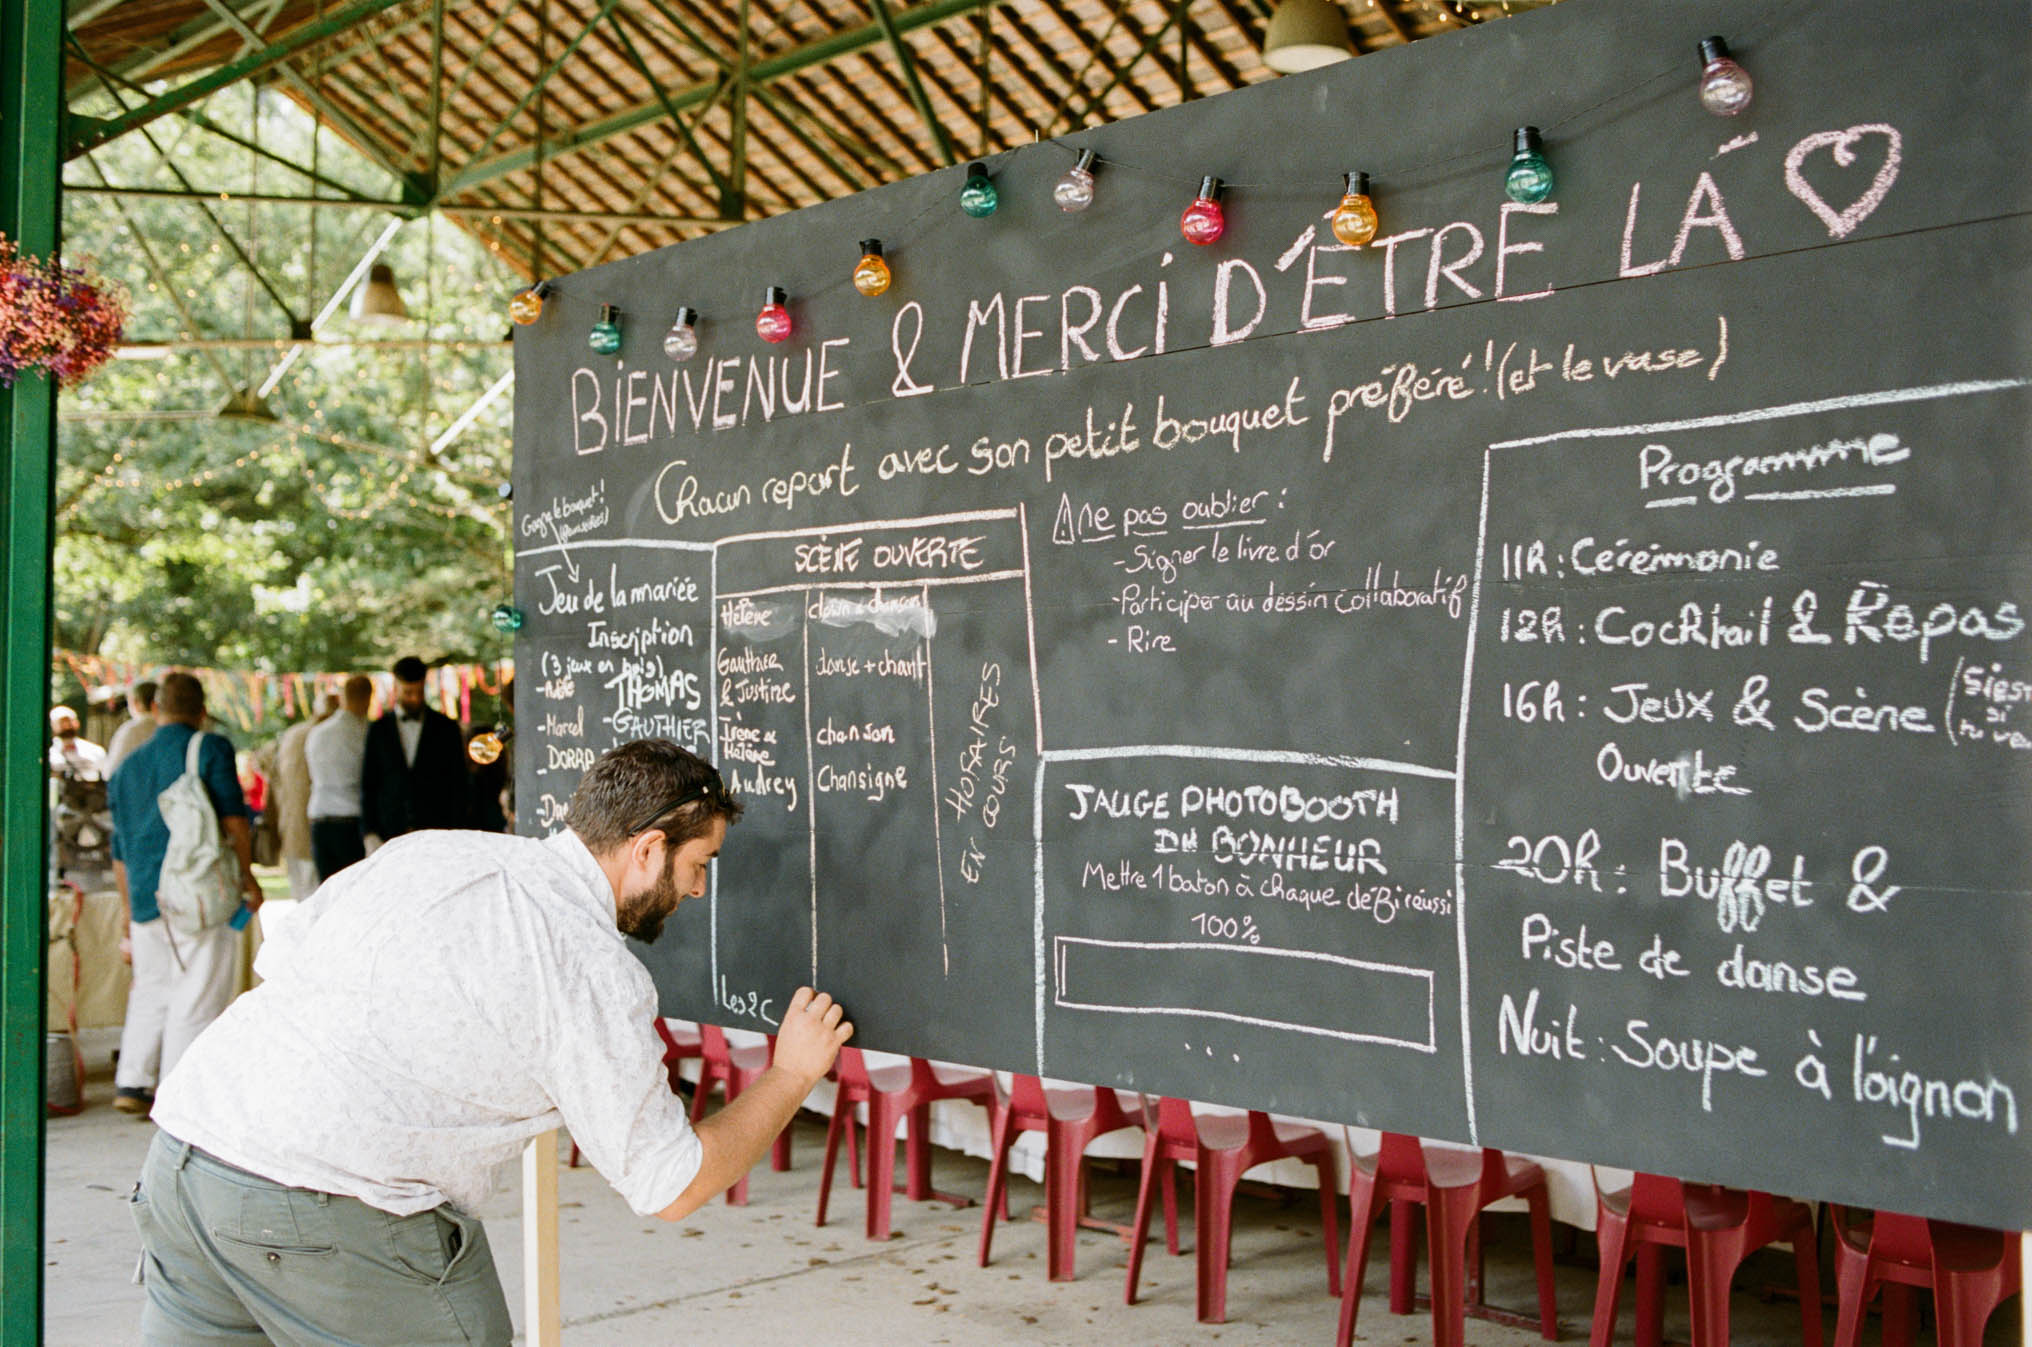 BIENVENUE & MERCI D'ÊTRE LÀ
Chacun repart avec son petit bouquet préféré ! (et le vase)
Gagne le bouquet !
Jeu de la mariée
Inscription
(3 jeux en bois)
THOMAS
- Marcel
- GAUTHIER
- DORA
SCÈNE OUVERTE
Hélène clown & chanson
Gauthier danse + chant
& Justine
Irène & chanson
Hélène
Audrey Chansigne
Les 2 C
HORAIRES
EN COURS
⚠ ne pas oublier :
- Signer le livre d'or
- Participer au dessin collaboratif
- Rire
JAUGE PHOTOBOOTH
DU BONHEUR
Mettre 1 baton à chaque défi réussi
100%
...
Programme
11h : Cérémonie
12h : Cocktail & Repas
16h : Jeux & Scène
Ouverte
(Siest
si
20h : Buffet &
Piste de danse
Nuit : Soupe à l'oignon